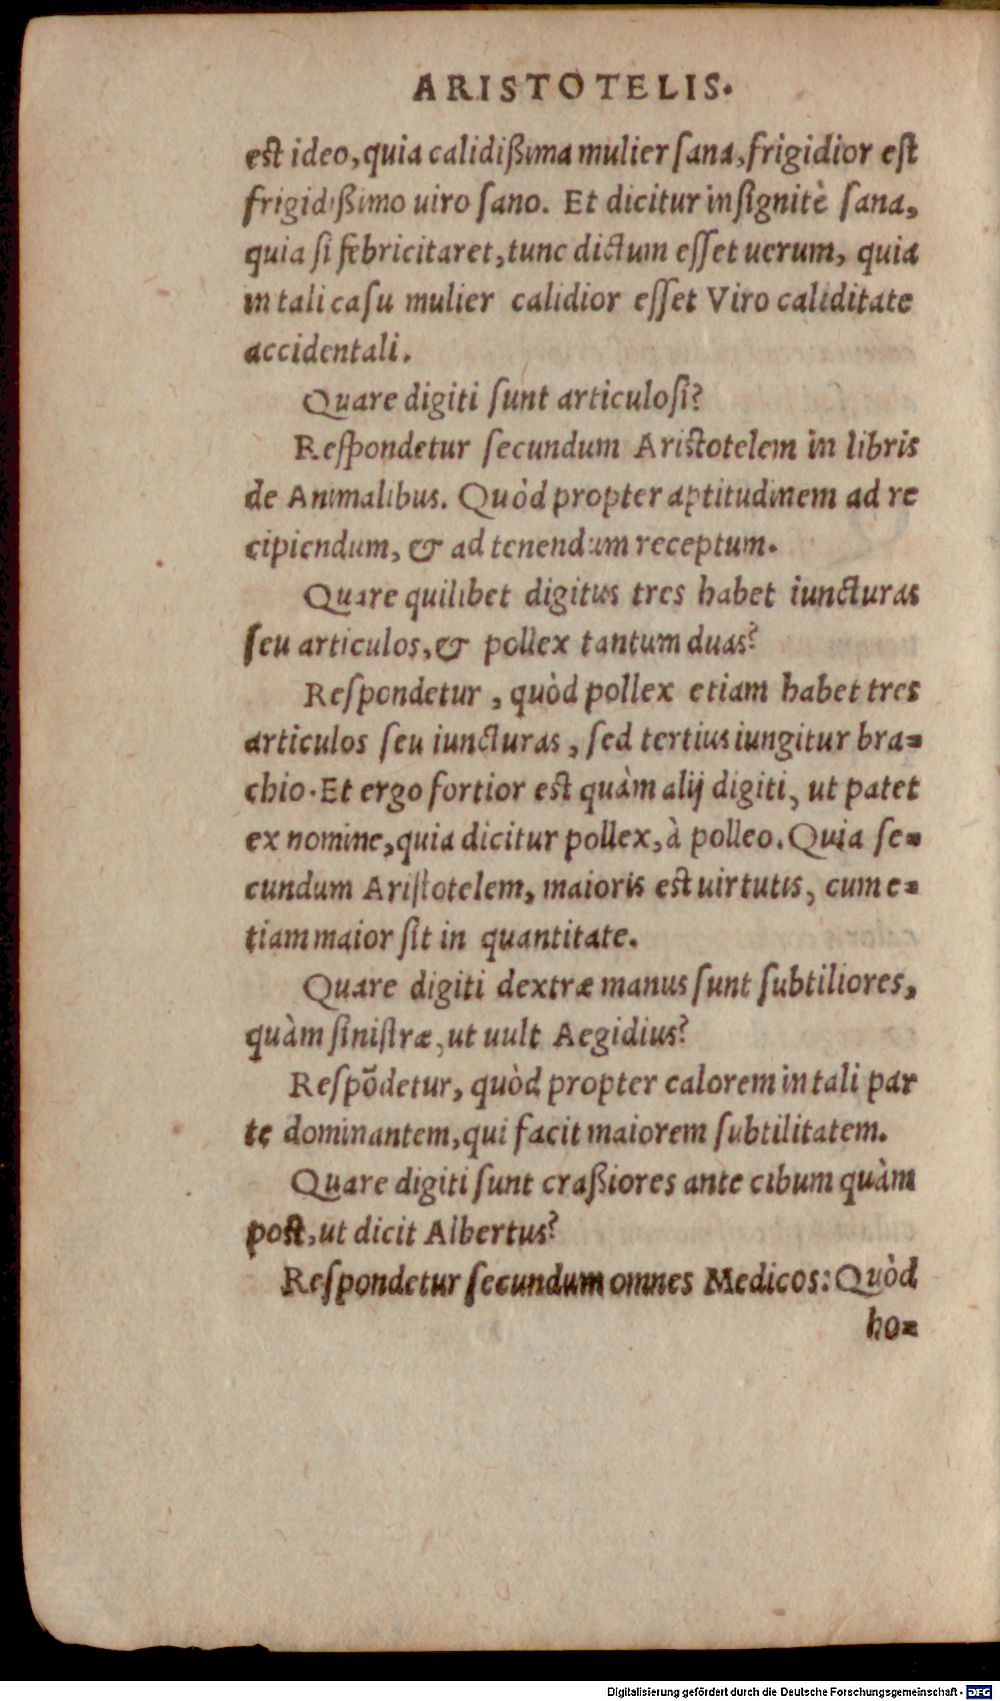 ARISTOTELIS.
est ideo, quia calidißima mulier sana, frigidior est
frigidißimo uiro sano. Et dicitur insignitè sana,
quia si febricitaret, tunc dictum esset uerum, quia
in tali casu mulier calidior esset Viro caliditate
accidentali.
Quare digiti sunt articulosi?
Respondetur secundum Aristotelem in libris
de Animalibus. Quòd propter aptitudinem ad re
cipiendum, & ad tenendum receptum.
Quare quilibet digitus tres habet iuncturas
seu articulos, & pollex tantum duas?
Respondetur, quòd pollex etiam habet tres
articulos seu iuncturas, sed tertius iungitur bra=
chio. Et ergo fortior est quàm alij digiti, ut patet
ex nomine, quia dicitur pollex, à polleo. Quia se=
cundum Aristotelem, maioris est uirtutis, cum e=
tiam maior sit in quantitate.
Quare digiti dextræ manus sunt subtiliores,
quàm sinistræ, ut uult Aegidius?
Respõdetur, quòd propter calorem in tali par
te dominantem, qui facit maiorem subtilitatem.
Quare digiti sunt craßiores ante cibum quàm
post, ut dicit Albertus?
Respondetur secundum omnes Medicos: Quòd
ho=
Digitalisierung gefördert durch die Deutsche Forschungsgemeinschaft - DFG